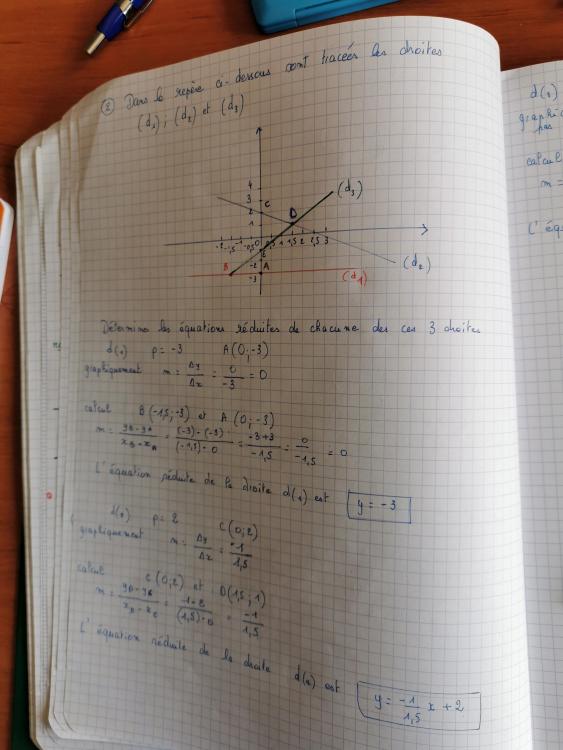 ② Dans le repère ci-dessous sont tracées les droites
(d1) ; (d2) et (d3)
4
3
2
1
C
D
(d3)
-2 -1,5 -1 -0,5 0 0,5 1 1,5 2 2,5 3
-2
-3
B
A
(d1)
(d2)
Détermine les équations réduites de chacune des ces 3 droites
d(1) p = -3 A(0;-3)
graphiquement m = Δy/Δx = 0/-3 = 0
calcul B(-1,5;-3) et A(0;-3)
m = yB-yA/xB-xA = (-3)-(-3)/(-1,5)-0 = -3+3/-1,5 = 0/-1,5 = 0
L'équation réduite de la droite d(1) est y = -3
d(2) p = 2 C(0;2)
graphiquement m = Δy/Δx = -1/1,5
calcul C(0;2) et D(1,5;1)
= 1-2/(1,5)-0 = -1/1,5
L'équation réduite de la droite d(2) est y = -1/1,5 x + 2
d(2)
graphi
pas
calcul
m =
L'équ